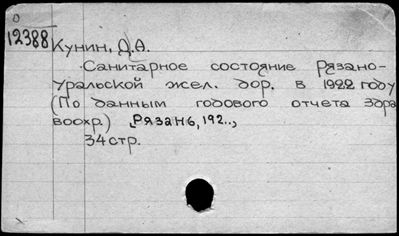 12388
Кунин, Д.А.
Санитарное состояние Рязано-
Уральской жел. дор. в 1922 году
(По данным годового отчета Здра
воохр.) Рязань, 192..,
34 стр.